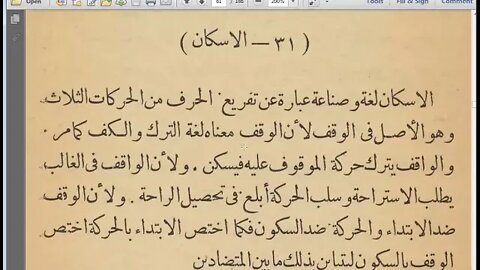 Open
61 / 198
200%
Tools
Fill & Sign
Comment
( ٣١ – الاسكان )
الاسكان لغة وصناعة عبارة عن تفريغ الحرف من الحركات الثلاث
وهو الأصل فى الوقف لأن الوقف معناه لغة الترك والكف كمامر .
والواقف يترك حركة الموقوف عليه فيسكن . ولأن الواقف فى الغالب
يطلب الاستراحة وسلب الحركة أبلغ فى تحصيل الراحة . ولأن الوقف
ضد الابتداء والحركة ضد السكون فكما اختص الابتداء بالحركة اختص
الوقف بالسكون ليتباين بذلك مابين المتضادين